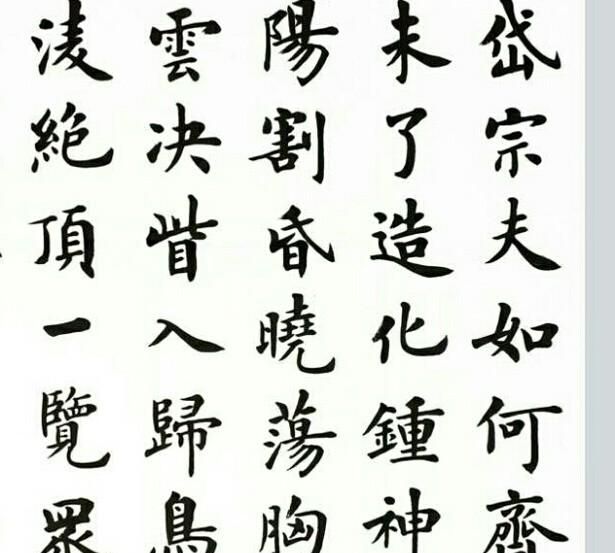 岱宗夫如何齊
未了造化鍾神
陽割昏曉蕩胸
雲決眥入歸鳥
淩絶頂一覽眾